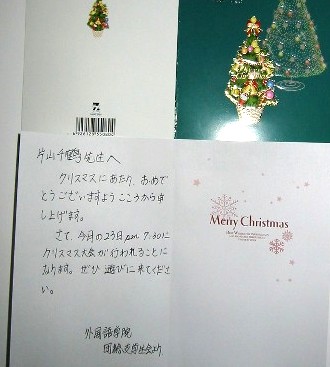 片山千鶴先生へ
クリスマスにあたり、おめで
とうございますようこころから申
し上げます。
さて、今月の23日pm 7:30に
クリスマス大会が行われることに
なります。ぜひ遊びに来てくださ
い。
外国語学院
Merry Christmas